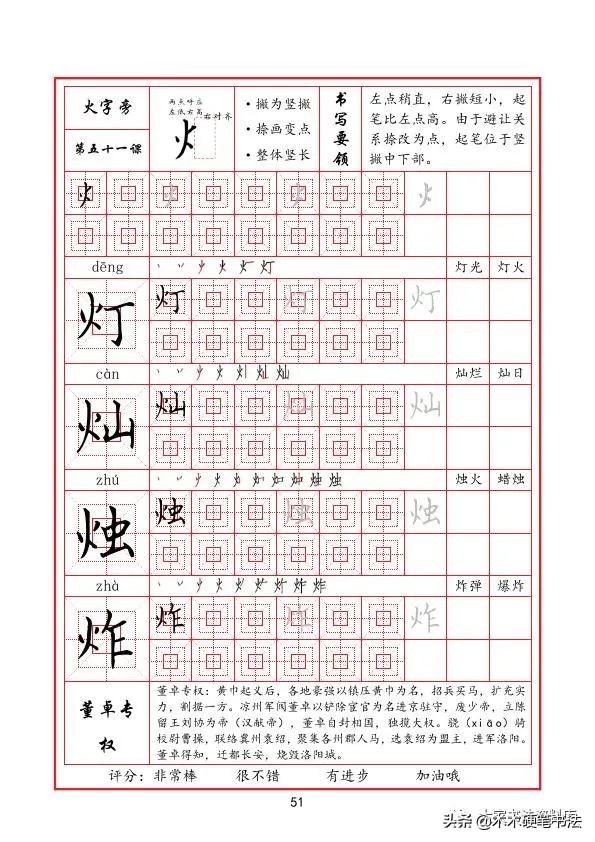 火字旁
第五十一课
两点呼应
左低右高
右对齐
火
• 撇为竖撇
• 捺画变点
• 整体竖长
书写要领
左点稍直，右撇短小，起
笔比左点高。由于避让关
系捺改为点，起笔位于竖
撇中下部。
火 火 火 火
dēng
灯光 灯火
灯 灯 灯 灯
càn
灿烂 灿日
灿 灿 灿 灿
zhú
烛火 蜡烛
烛 烛 烛 烛
zhà
炸弹 爆炸
炸 炸 炸 炸
董卓专权
董卓专权：黄巾起义后，各地豪强以镇压黄巾为名，招兵买马，扩充实
力，割据一方。凉州军阀董卓以铲除宦官为名进京驻守，废少帝，立陈
留王刘协为帝（汉献帝），董卓自封相国，独揽大权。骁（xiāo）骑
校尉曹操，联络冀州袁绍，聚集各州郡人马，选袁绍为盟主，进军洛阳。
董卓得知，迁都长安，烧毁洛阳城。
评分：非常棒 很不错 有进步 加油哦
51
头条 @木木硬笔书法